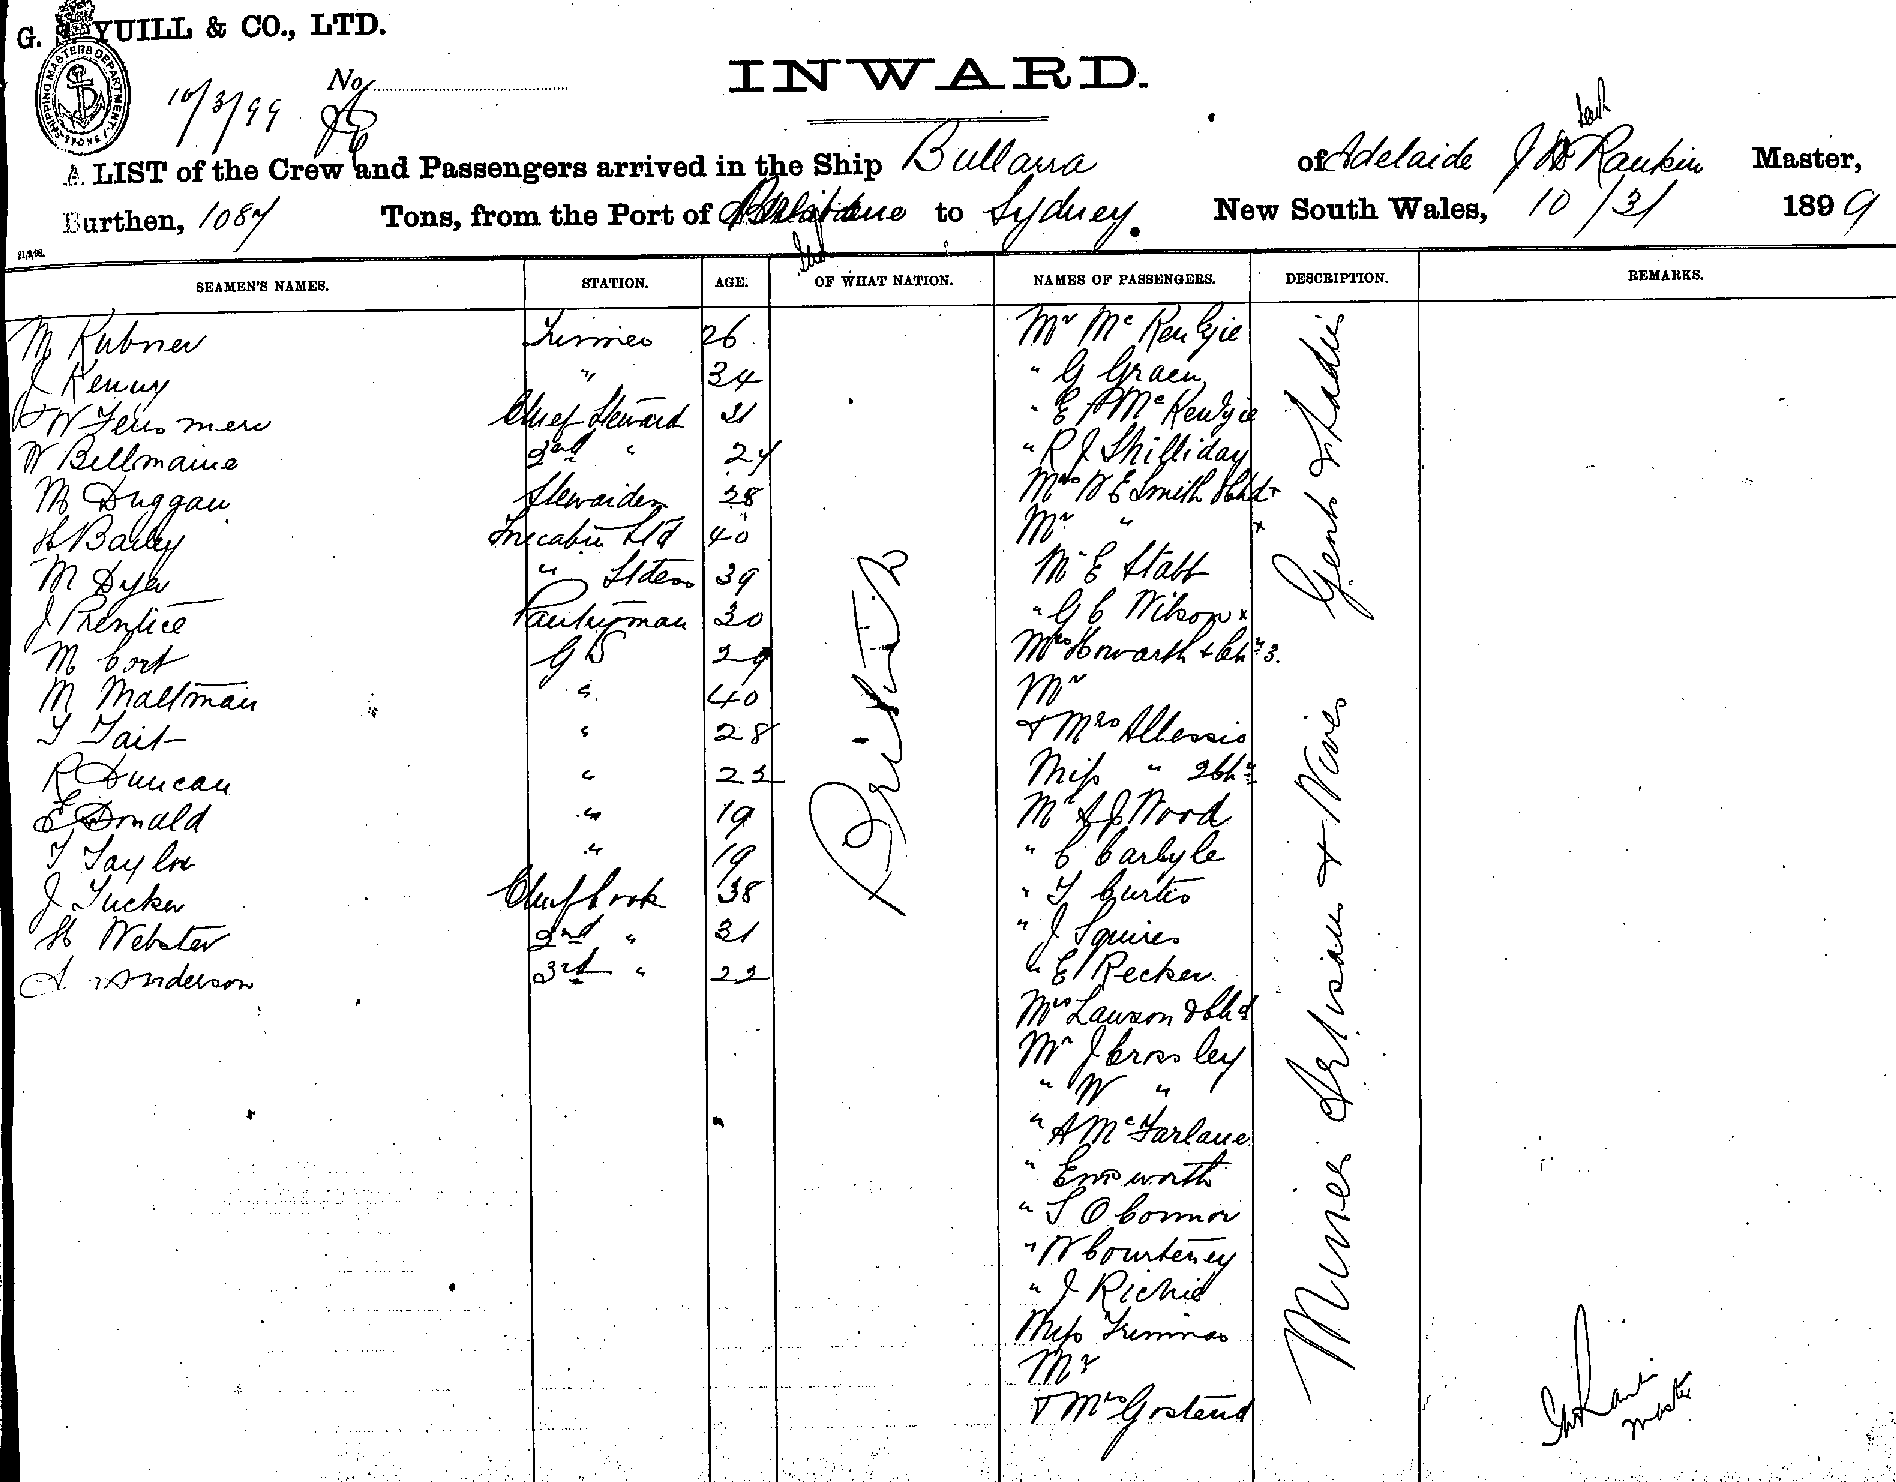 G. S. YUILL & CO., LTD.
SHIPPING MASTERS DEPARTMENT
10/3/99 No
INWARD.
A LIST of the Crew and Passengers arrived in the Ship Bullarra of Adelaide J Rankin Master,
Burthen, 1087 Tons, from the Port of Brisbane to Sydney. New South Wales, 10/31 1899
SEAMEN'S NAMES. STATION. AGE. OF WHAT NATION. NAMES OF PASSENGERS. DESCRIPTION. REMARKS.
M Rubner Trimmer 26 Mr Mc Kenzie
J Kenny " 34 " G Graen
Chief Steward 31 " E A Mc Kenzie
W Bellmaine 2nd " 27 " R J Shilliday
M Duggan Stewardess 38 Mrs W E Smith & Chd
H Baily Forecabin Std 40 Mr "
M Dyer " Stdess 39 Mr E Stabb
J Prentice Pantryman 30 " G C Wilson x
M Cort G S 29 Mrs Howarth & Chn 3.
M Maltman " 40 Mr
T Tait " 28 & Mrs Albessio
R Duncan " 22 Miss " 2 Chn
E Donald " 19 Mr A J Wood
T Taylor " 19 " C Carlyle
J Tucker Chief Cook 38 " T Curtis
H Webster 2nd " 31 " J Squires
A Anderson 3rd " 22 " E Recker
Mrs Lawson & Chd
Mr J Crossley
" W "
" A McFarlane
" Emsworth
" T O Connor
" W Courteney
" J Richie
Miss Trimnas
Mr
& Mrs Gostend
British
Gents & Ladies
Miners Artisans & Wives
Master